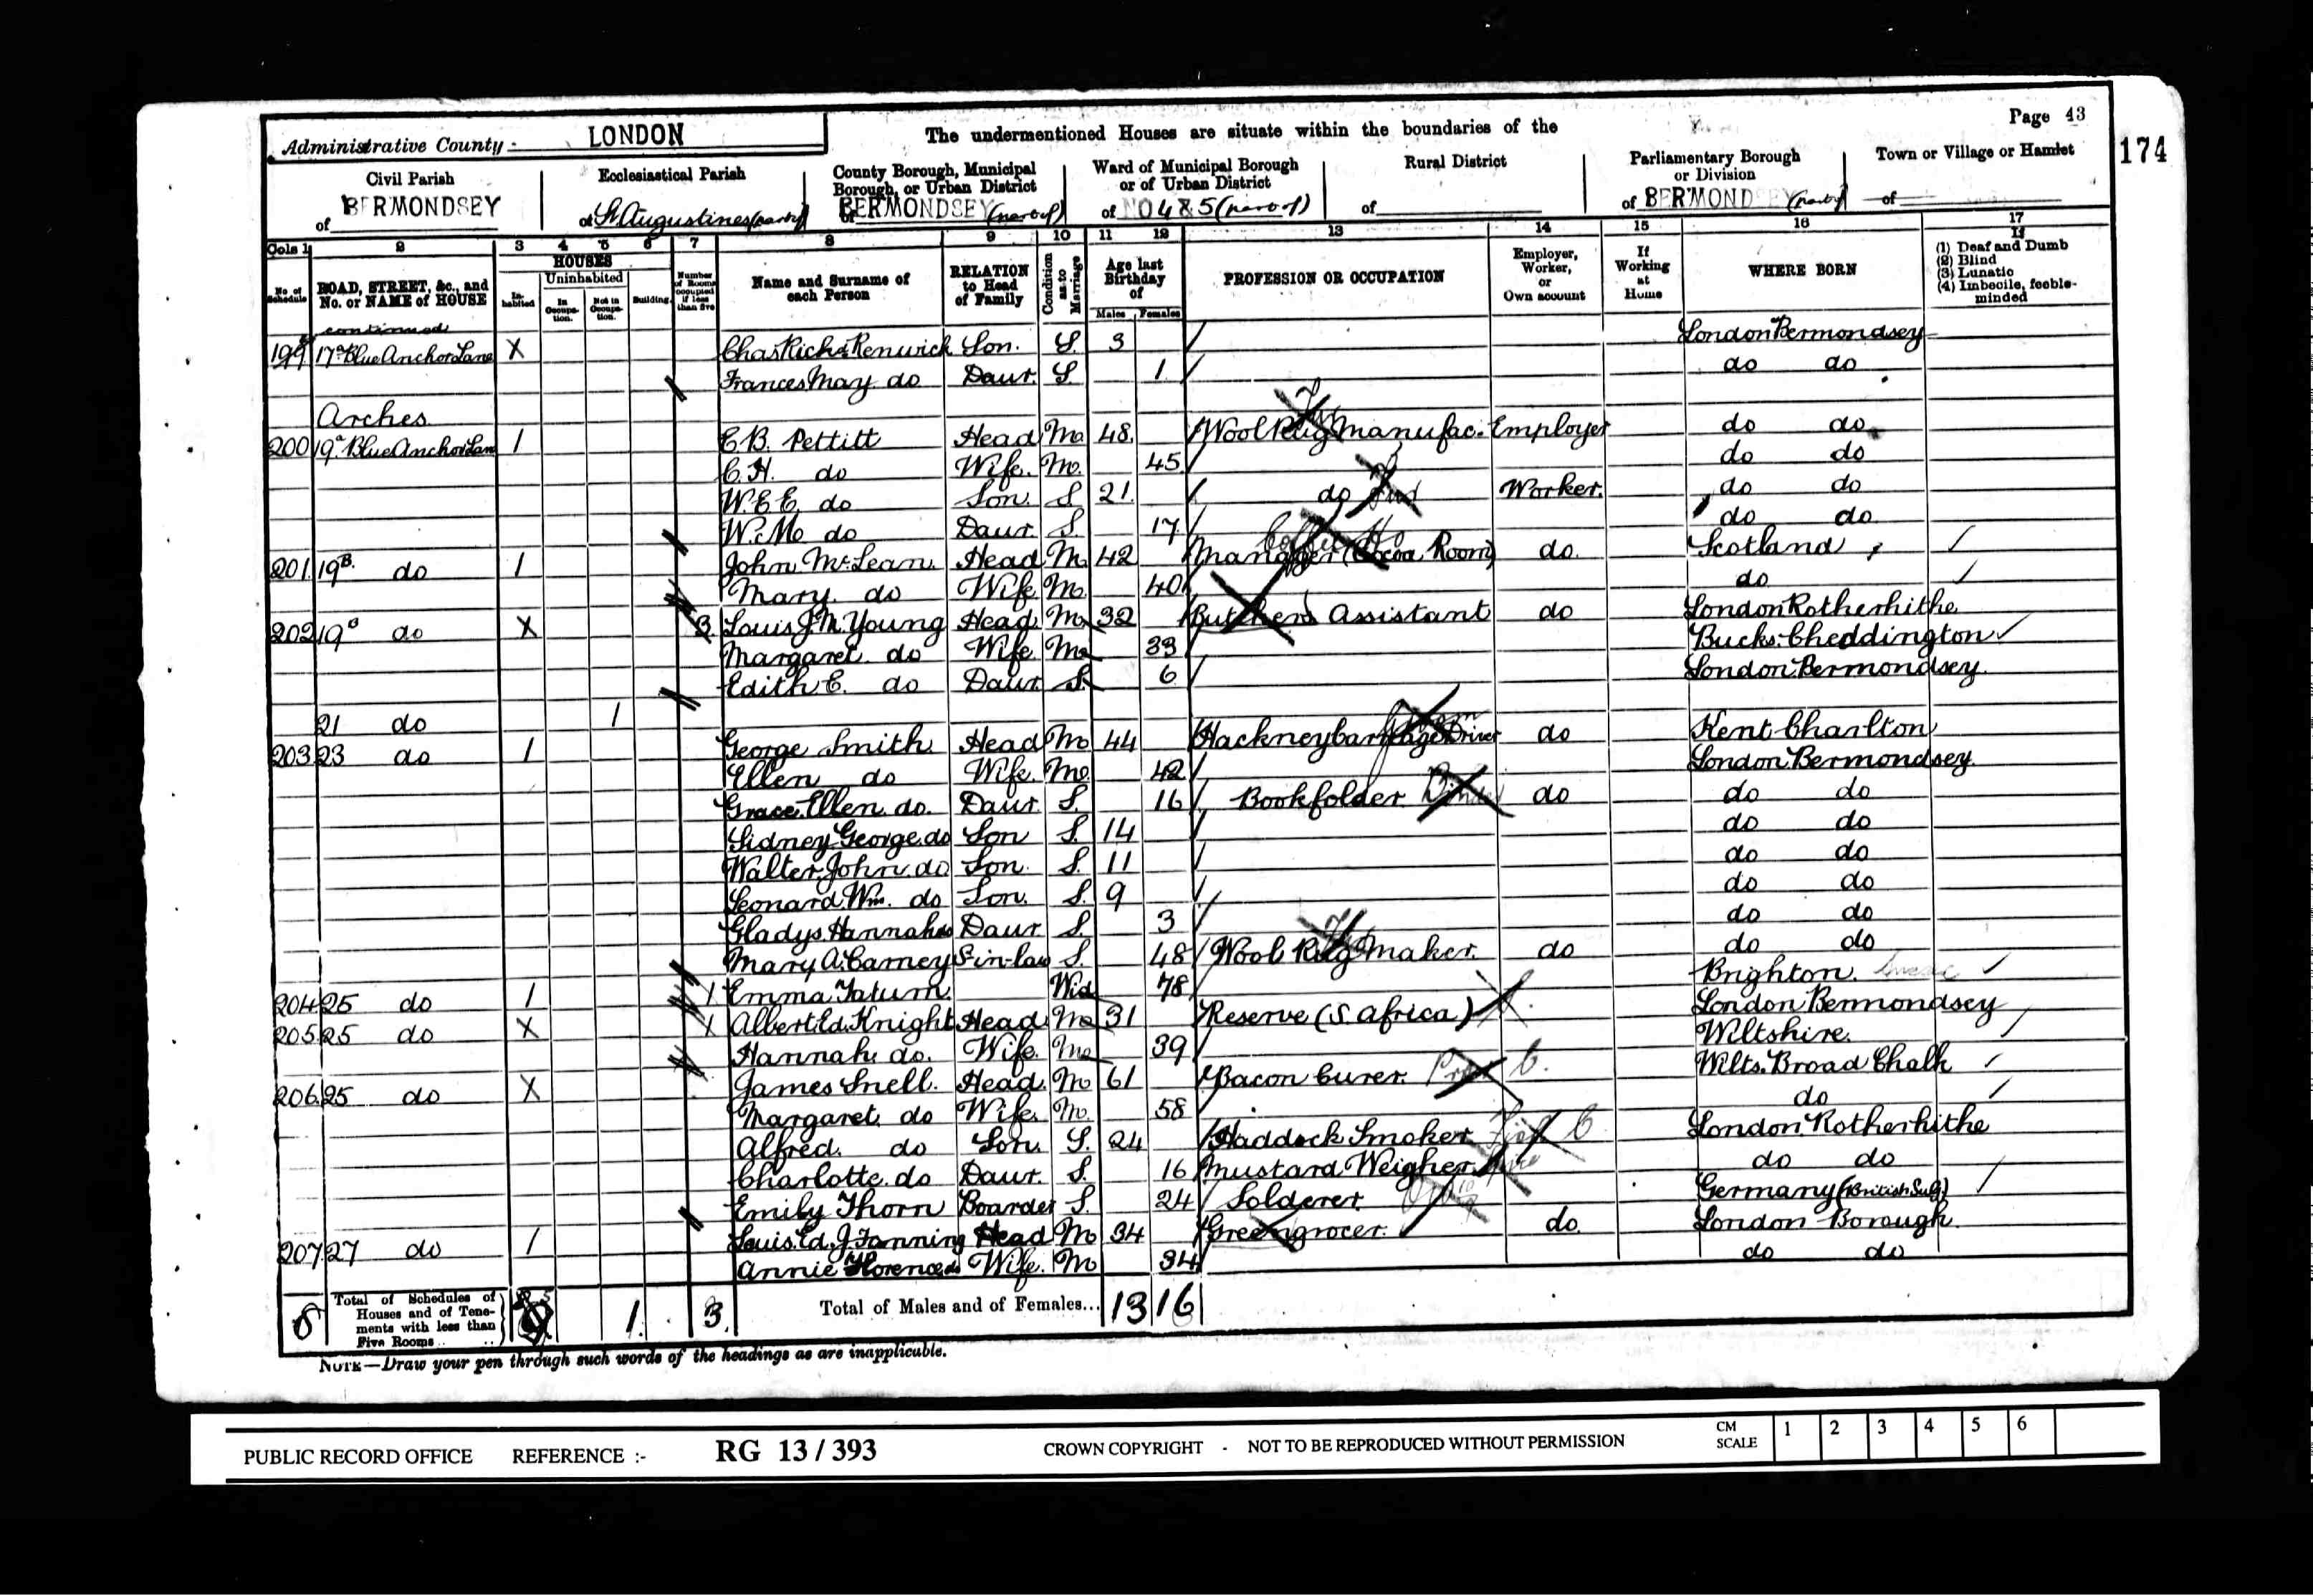 Page 43
174
Administrative County LONDON The undermentioned Houses are situate within the boundaries of the
Civil Parish of BERMONDSEY
Ecclesiastical Parish of St Augustines (party)
County Borough, Municipal Borough, or Urban District of BERMONDSEY (part of)
Ward of Municipal Borough or of Urban District of No 4 & 5 (part of)
Rural District of
Parliamentary Borough or Division of BERMONDSEY (party)
Town or Village or Hamlet of
Cols 1 2 3 4 5 6 7 8 9 10 11 12 13 14 15 16 17
No. of Schedule
ROAD, STREET, &c., and No. or NAME of HOUSE
HOUSES
Inhabited
Uninhabited
In Occupation.
Not in Occupation.
Building.
Number of Rooms occupied if less than five
Name and Surname of each Person
RELATION to Head of Family
Condition as to Marriage
Age last Birthday of
Males Females
PROFESSION OR OCCUPATION
Employer, Worker, or Own account
If Working at Home
WHERE BORN
If
(1) Deaf and Dumb
(2) Blind
(3) Lunatic
(4) Imbecile, feeble-minded
continued
199 17a Blue Anchor Lane X Chas Richd Renwick Son. S. 3 London Bermondsey
Frances May do Daur. S. 1 do do
Arches
200 19a Blue Anchor Lane 1 E.B. Pettitt Head M 48. Wool Rug Manufac. Employer do do
C.H. do Wife. M. 45 do do
W.E.E. do Son. S 21. do Worker. do do
W.M. do Daur. S. 17 do do
201 19B. do 1 John McLean. Head M. 42 Manager (Cocoa Room) do. Scotland
Mary. do Wife. M. 40 do
202 19c do X 3. Louis J.M. Young Head. M. 32 Butchers Assistant do London Rotherhithe
Margaret. do Wife. M 33 Bucks. Cheddington
Edith E. do Daur S. 6 London Bermondsey.
21 do 1
203 23 do 1 George Smith Head M 44 Hackney Carriage Driver do Kent Charlton
Ellen do Wife. M 42 London Bermondsey.
Grace Ellen. do. Daur S. 16 Bookfolder. do do do
Sidney George. do Son S. 14 do do
Walter John. do Son. S. 11 do do
Leonard Wm. do Son. S. 9 do do
Gladys Hannah do Daur S. 3 do do
Mary A. Carney S-in-law S. 48 Wool Rug Maker. do do do
204 25 do 1 1 Emma Tatum. Wid 78 Brighton.
205 25 do X 1 Albert Ed. Knight Head. M 31 Reserve (S. Africa) London Bermondsey
Hannah. do. Wife. M 39 Wiltshire.
206 25 do X James Snell. Head. M 61 Bacon Curer. Wilts. Broad Chalk
Margaret. do Wife. M. 58 do
Alfred. do Son. S. 24 Haddock Smoker London. Rotherhithe
Charlotte. do Daur. S. 16 Mustard Weigher do do
Emily Thorn Boarder S. 24 Solderer. Germany (British Sub)
207 27 do 1 Louis. Ed. J. Fanning Head M 34 Greengrocer. do. London Borough
Annie Florence do Wife. M 34 do do
8 Total of Schedules of Houses and of Tenements with less than Five Rooms 1. 3. Total of Males and of Females... 13 16
NOTE—Draw your pen through such words of the headings as are inapplicable.
PUBLIC RECORD OFFICE REFERENCE :- RG 13 / 393 CROWN COPYRIGHT - NOT TO BE REPRODUCED WITHOUT PERMISSION CM SCALE 1 2 3 4 5 6